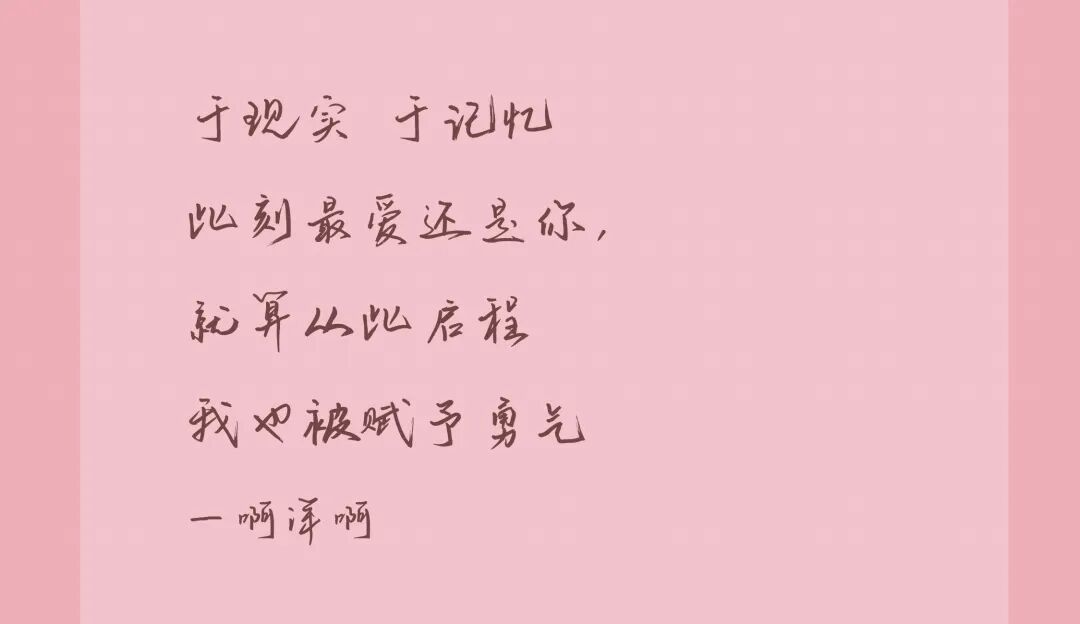 于现实 于记忆
此刻最爱还是你,
就算从此启程
我也被赋予勇气
一啊洋啊